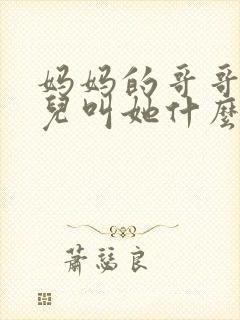 妈妈的哥哥
兒叫她什麼
蕭瑟良